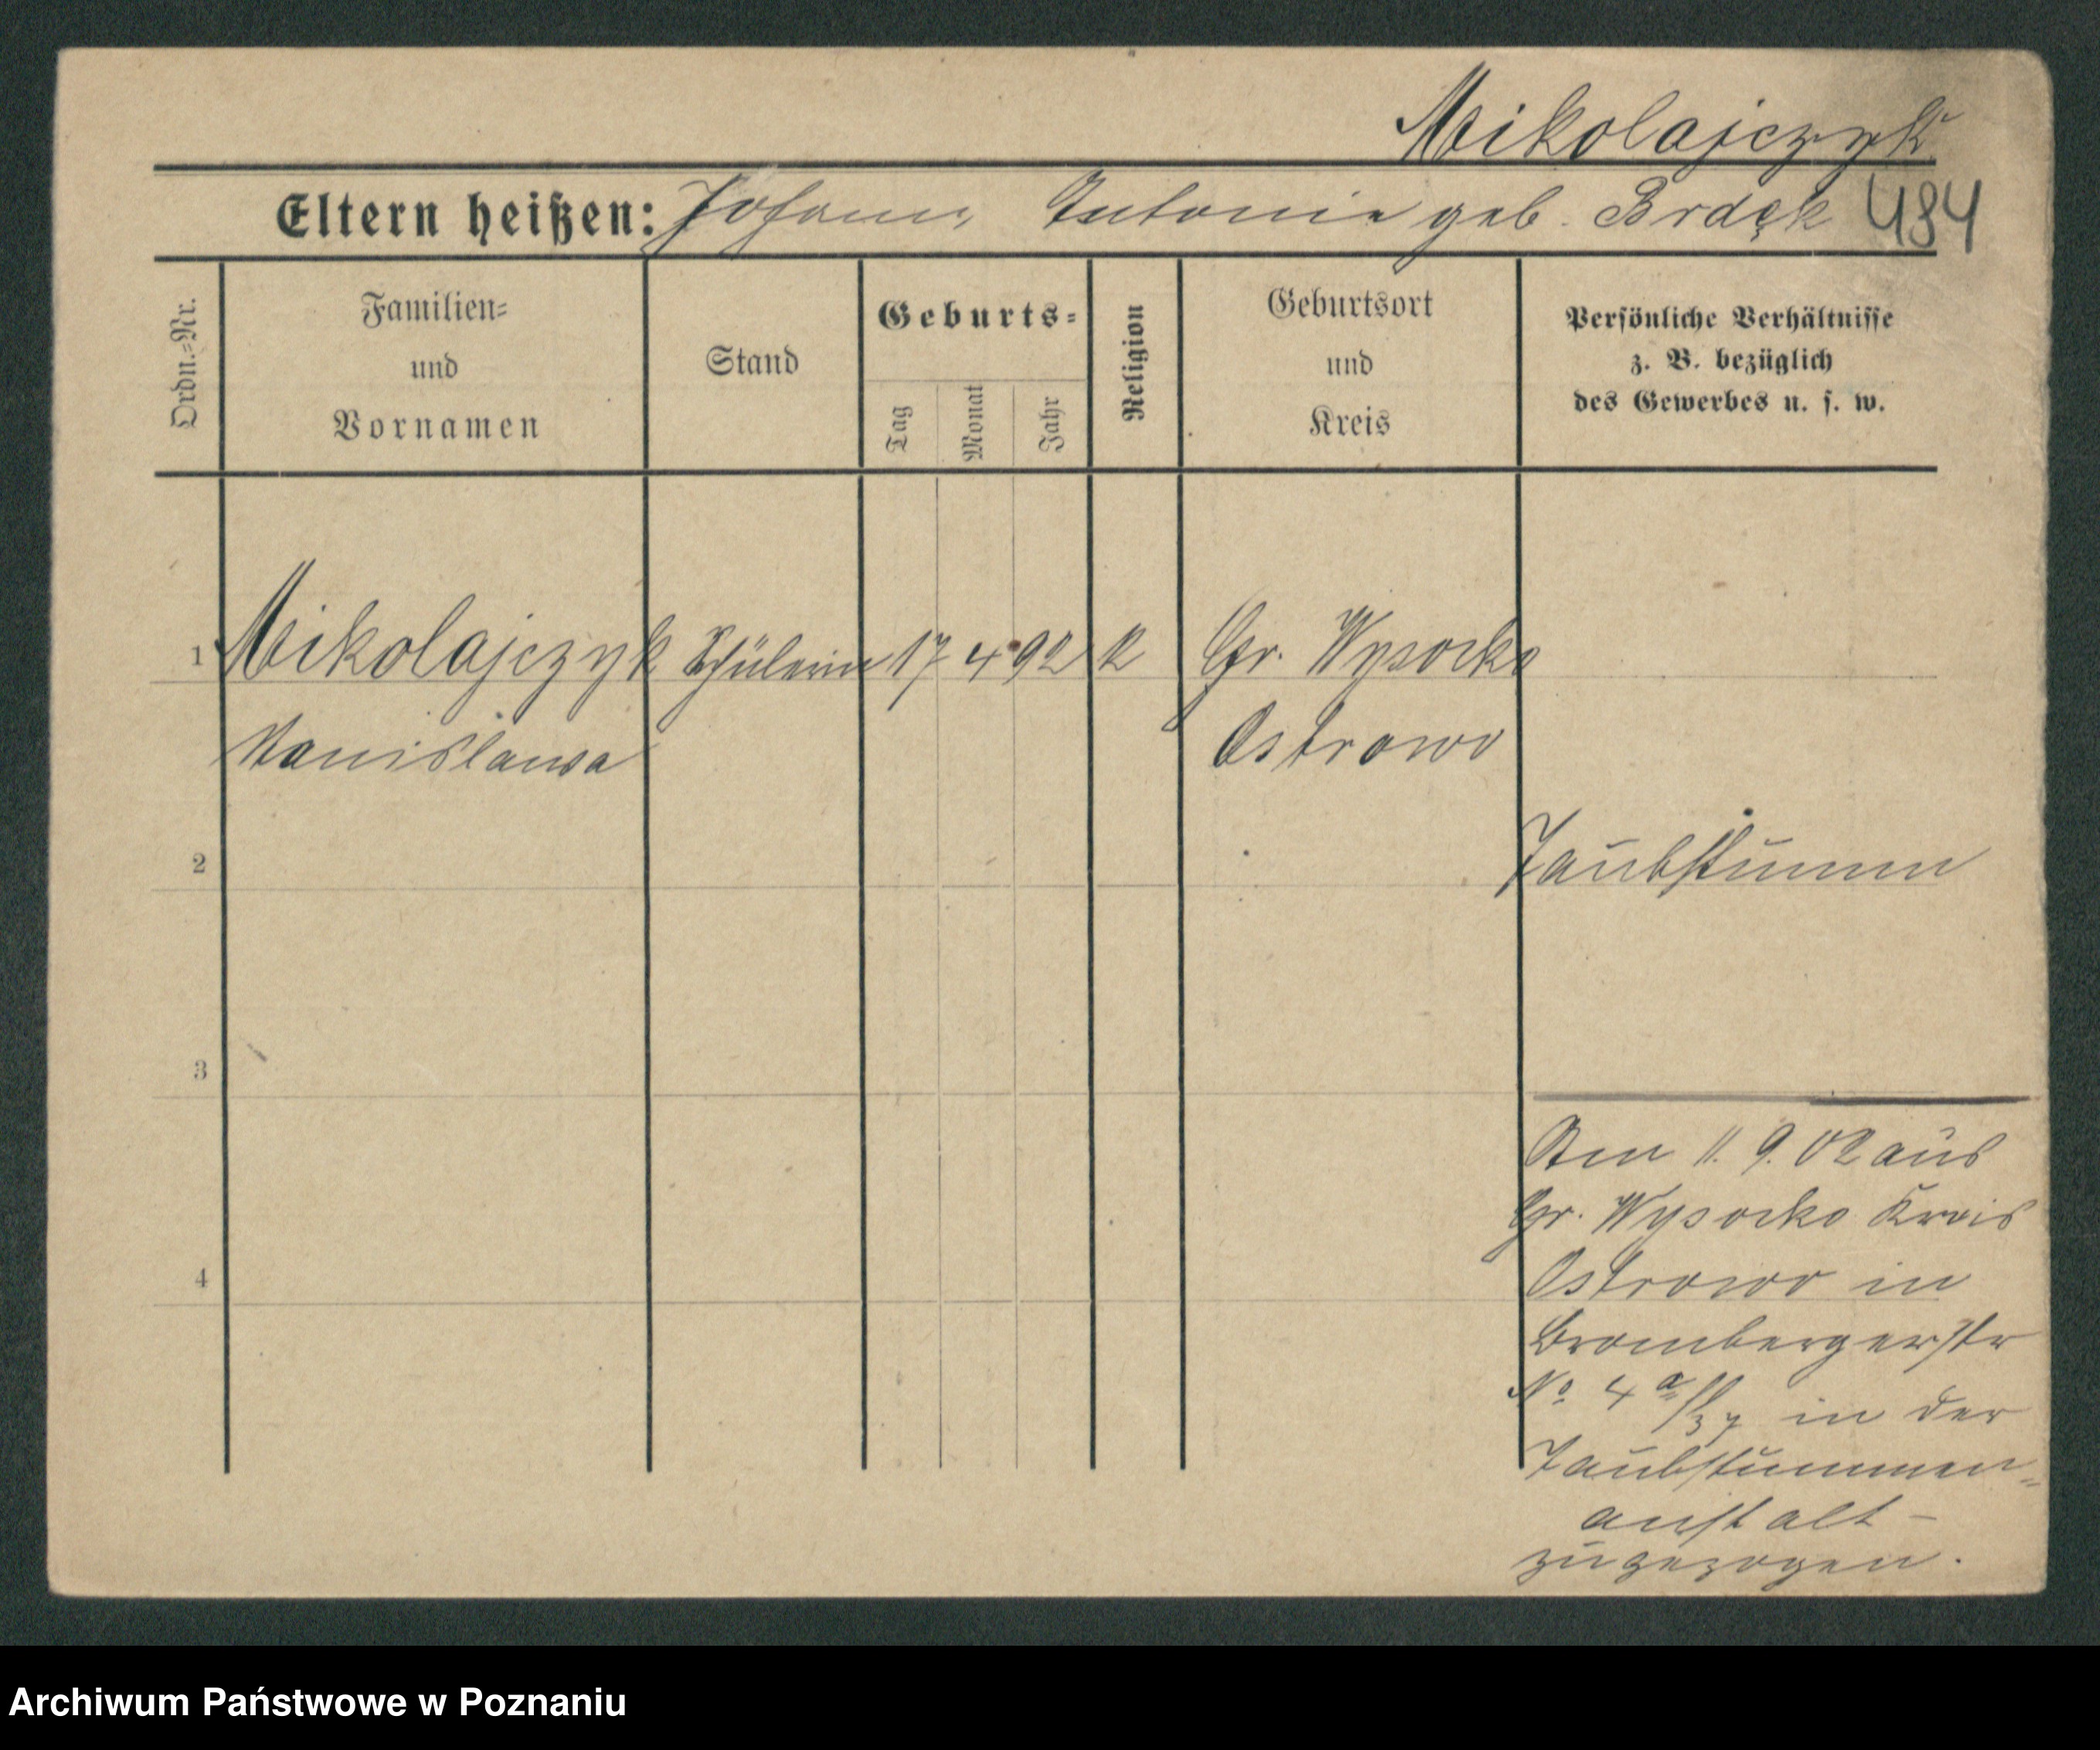 Mikolajczyk
Eltern heißen: Johann, Antonie geb. Brdęk 484
Ordn.-Nr.
Familien-
und
Vornamen
Stand
Geburts-
Tag
Monat
Jahr
Religion
Geburtsort
und
Kreis
Persönliche Verhältnisse
z. B. bezüglich
des Gewerbes u. s. w.
1 Mikolajczyk Schülerin 17 4 92 K Gr. Wysocko
Stanislawa Ostrowo
2 Taubstumm
3
Am 11. 9. 02 aus
Gr. Wysocko Kreis
4 Ostrowo in
Brombergerstr
No 4a/37 in der
Taubstummen-
anstalt -
zugezogen.
Archiwum Państwowe w Poznaniu